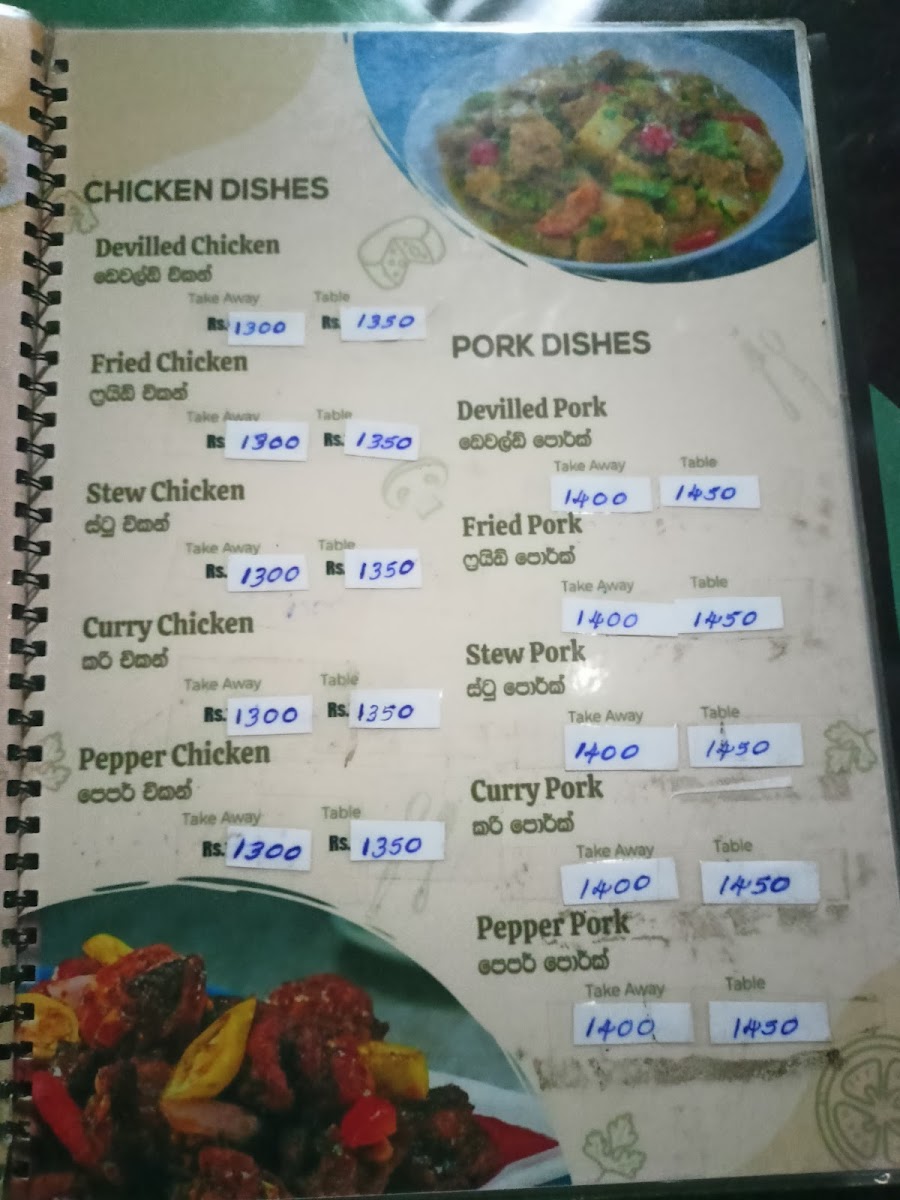 CHICKEN DISHES
Devilled Chicken
ඩෙවල්ඩ් චිකන්
Take Away Table
Rs. 1300 Rs. 1350
Fried Chicken
ෆ්‍රයිඩ් චිකන්
Take Away Table
Rs 1300 Rs. 1350
Stew Chicken
ස්ටූ චිකන්
Take Away Table
Rs. 1300 Rs. 1350
Curry Chicken
කරි චිකන්
Take Away Table
Rs. 1300 Rs. 1350
Pepper Chicken
පෙපර් චිකන්
Take Away Table
Rs. 1300 Rs. 1350
PORK DISHES
Devilled Pork
ඩෙවල්ඩ් පොර්ක්
Take Away Table
1400 1450
Fried Pork
ෆ්‍රයිඩ් පොර්ක්
Take Away Table
1400 1450
Stew Pork
ස්ටූ පොර්ක්
Take Away Table
1400 1450
Curry Pork
කරි පොර්ක්
Take Away Table
1400 1450
Pepper Pork
පෙපර් පොර්ක්
Take Away Table
1400 1450